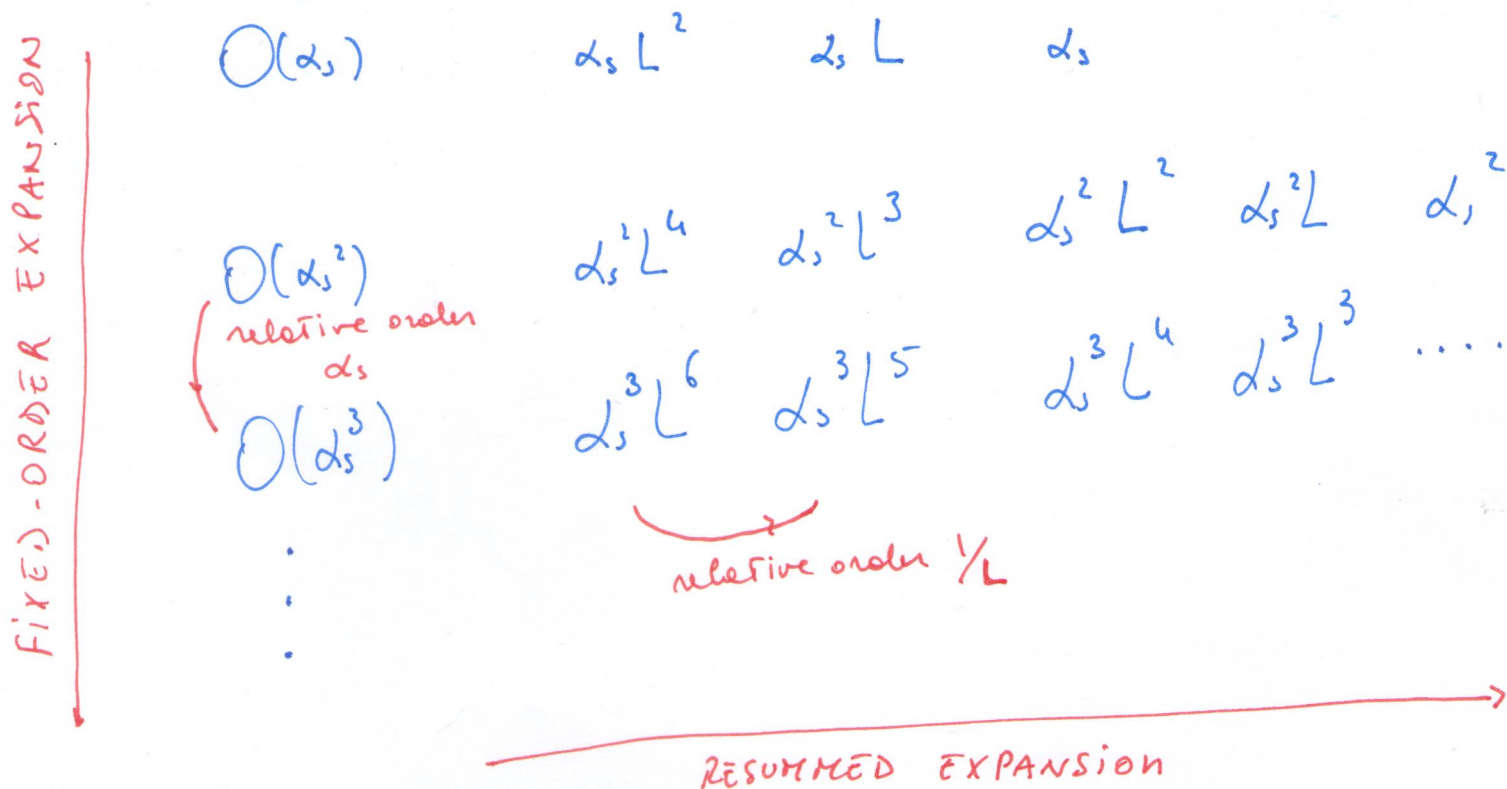 FIXED-ORDER EXPANSION
O(αs) αs L² αs L αs
O(αs²) αs² L⁴ αs² L³ αs² L² αs² L αs²
relative order
αs
O(αs³) αs³ L⁶ αs³ L⁵ αs³ L⁴ αs³ L³ ....
relative order 1/L
RESUMMED EXPANSION